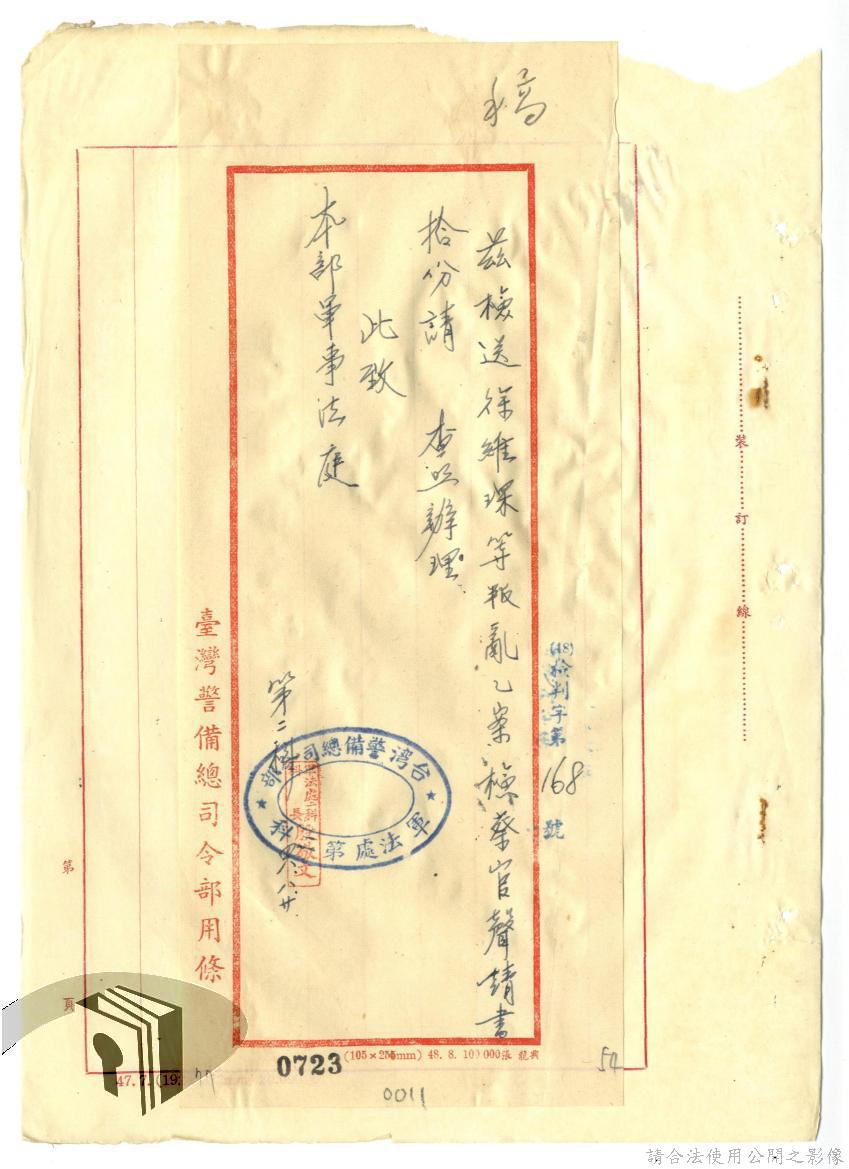 稿
(48)檢判字第168號
茲檢送徐維琛等叛亂乙案檢察官聲請書
拾份請 查照辦理
此致
本部軍事法庭
第二科
八.廿
台灣警備總司令部
軍法處第 科
軍法處二科
科長
臺灣警備總司令部用條
裝訂線
第 頁
(105×255mm) 48. 8. 10)000張 興龍
0723
47.7.(19
77
54
0011
請合法使用公開之影像